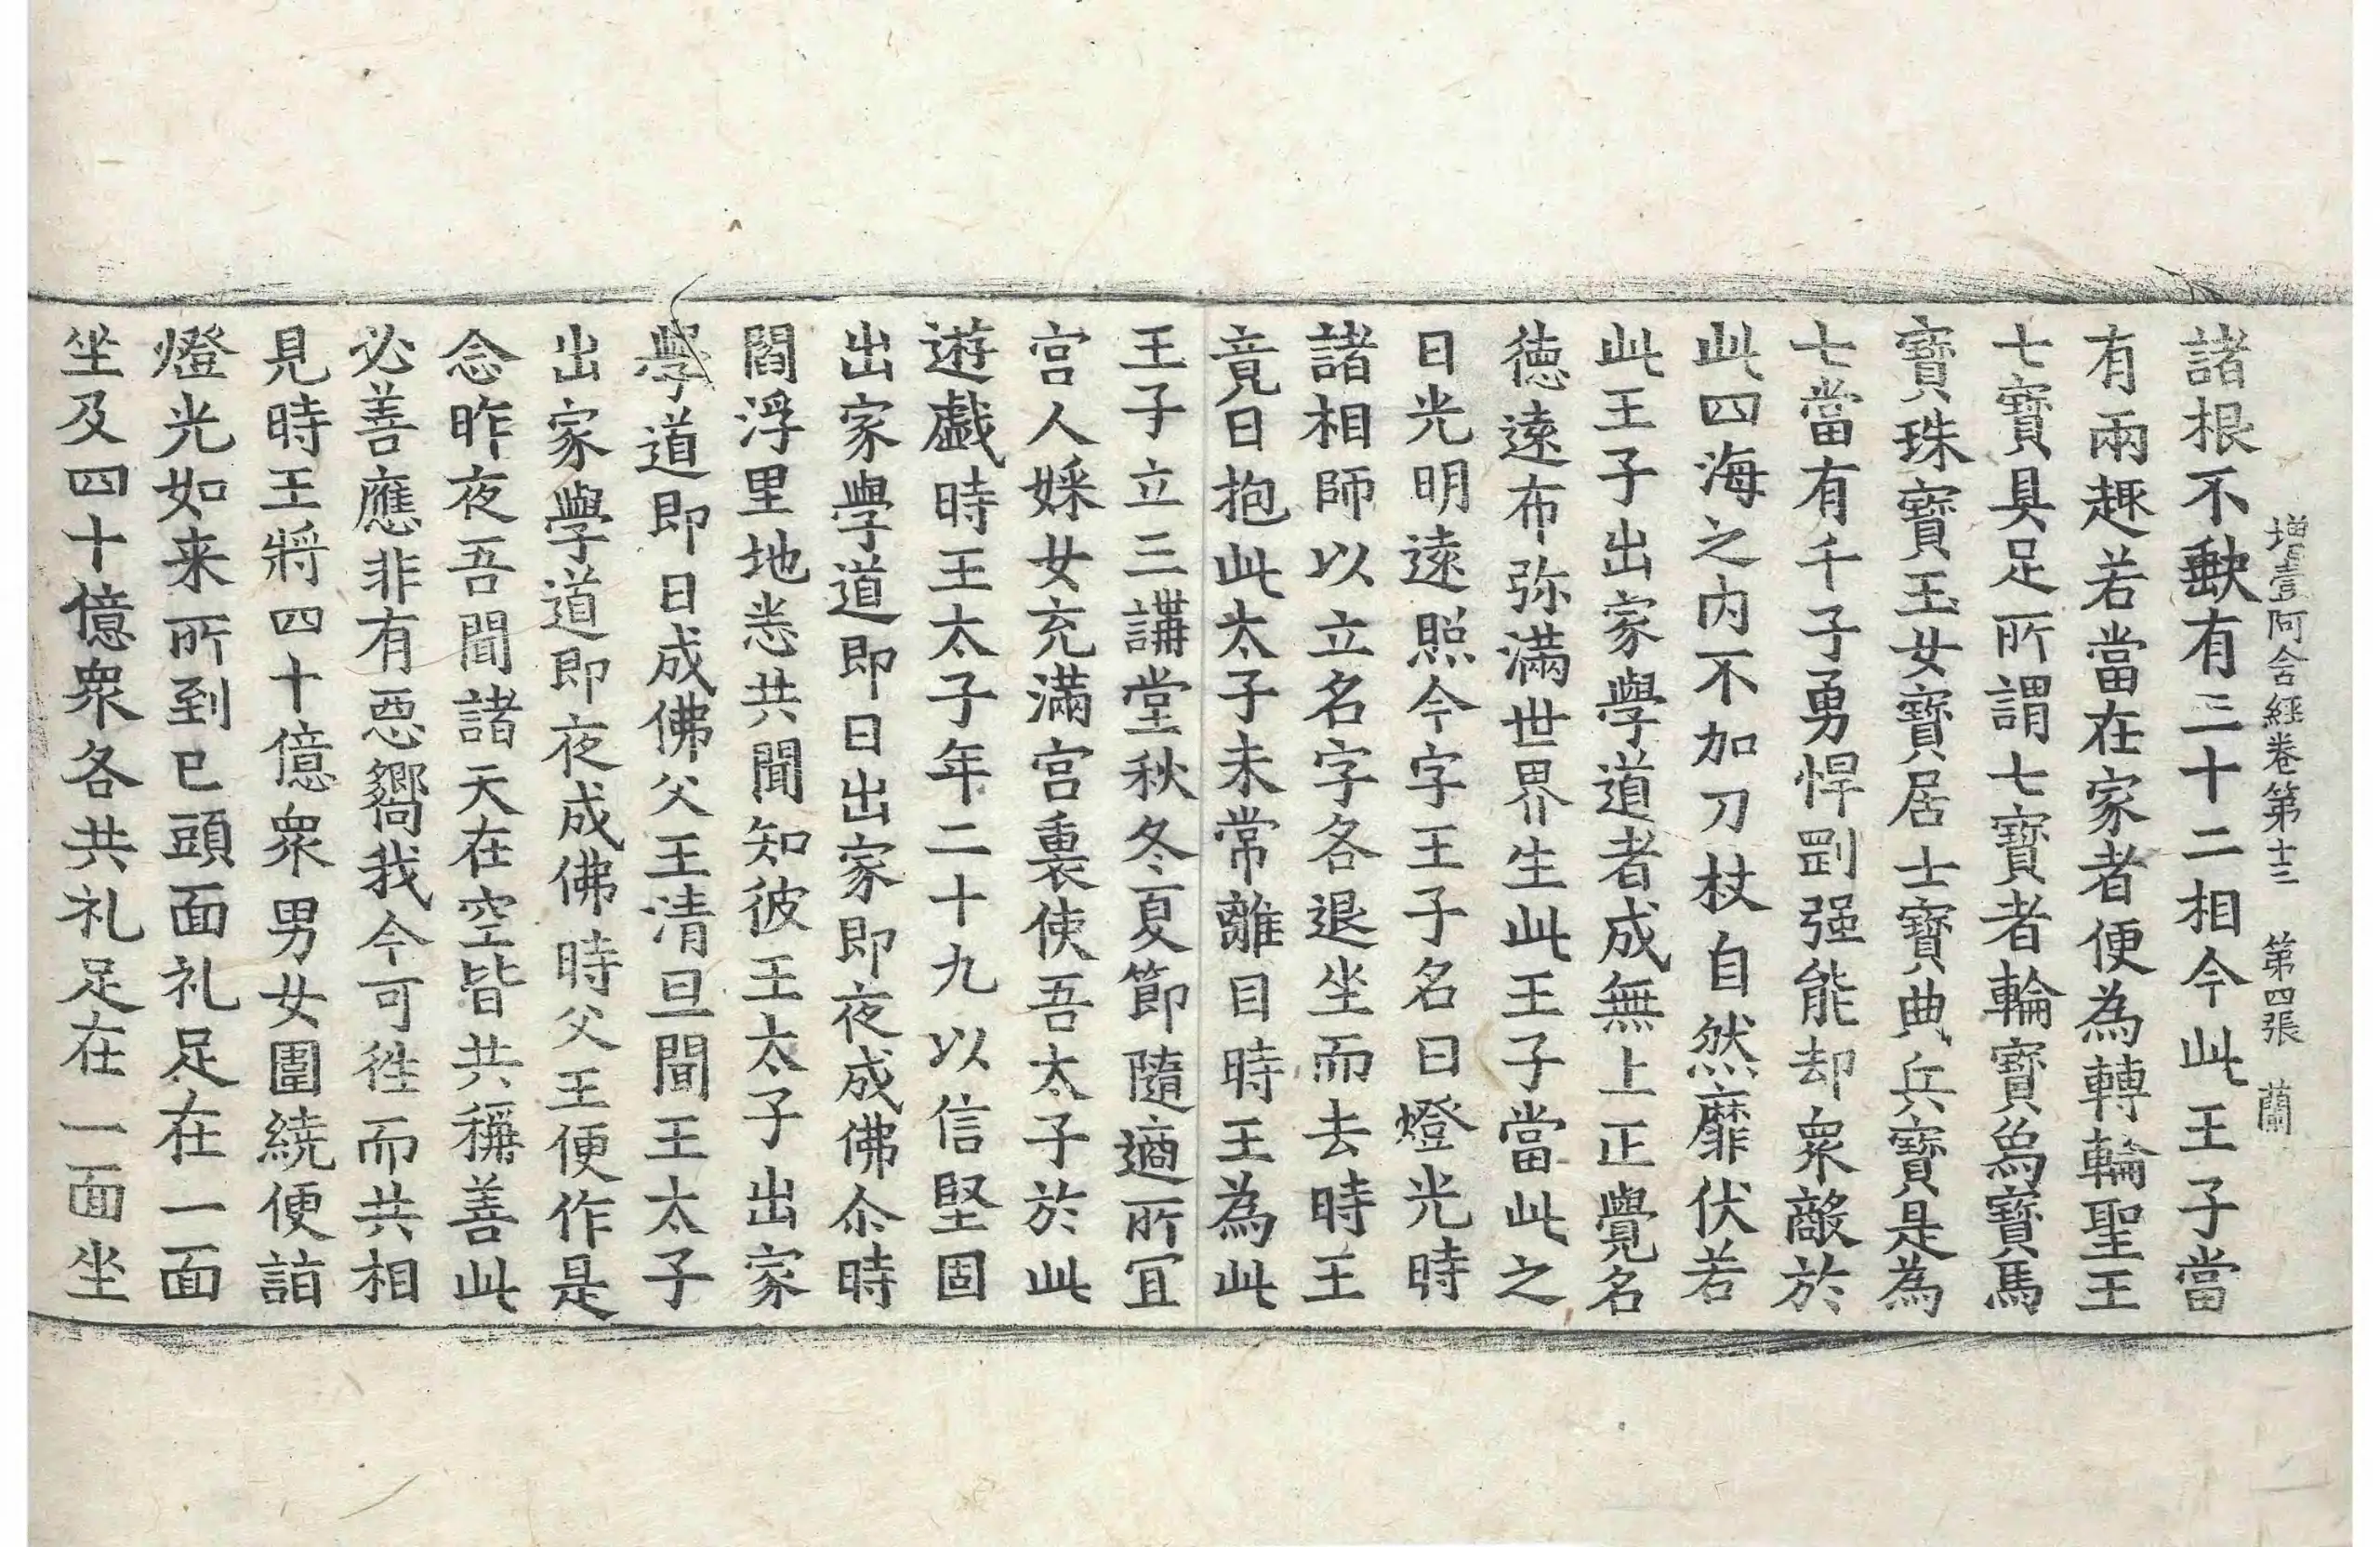 增壹阿含經卷第十三 第四張 蘭
諸根不缺有三十二相今此王子當
有兩趣若當在家者便為轉輪聖王
七寶具足所謂七寶者輪寶為寶馬
寶珠寶玉女寶居士寶典兵寶是為
七當有千子勇悍剛强能却衆敵於
此四海之内不加刀杖自然靡伏若
此王子出家學道者成無上正覺名
德遠布弥滿世界生此王子當此之
日光明遠照今字王子名曰燈光時
諸相師以立名字各退坐而去時王
竟日抱此太子未常離目時王為此
王子立三講堂秋冬夏節隨適所冝
宫人婇女充滿宫裏使吾太子於此
遊戲時王太子年二十九以信堅固
出家學道即日出家即夜成佛尒時
閻浮里地悉共聞知彼王太子出家
學道即日成佛父王清旦聞王太子
出家學道即夜成佛時父王便作是
念昨夜吾聞諸天在空皆共稱善此
必善應非有惡嚮我今可徃而共相
見時王將四十億衆男女圍繞便詣
燈光如来所到已頭面礼足在一面
坐及四十億衆各共礼足在一面坐